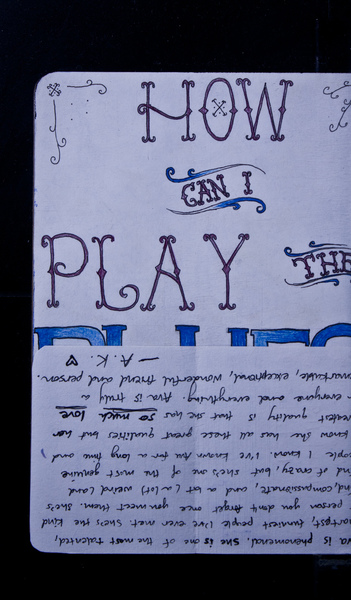 HOW
CAN I
PLAY THE
BLUES
va is phenomenal. She is one of the most talented,
martest, funniest people I've ever met. She's the kind
person you don't forget once you meet them. She's
ind, compassionate, and a bit (a lot) weird (and
ind of crazy), but she's one of the most genuine
people I know. I've known for a long time and I
know she has all these great qualities but her
reatest quality is that she has so much love
r everyone and everything. Ava is truly a
markable, exceptional, wonderful friend and person.
— A.K. ♥